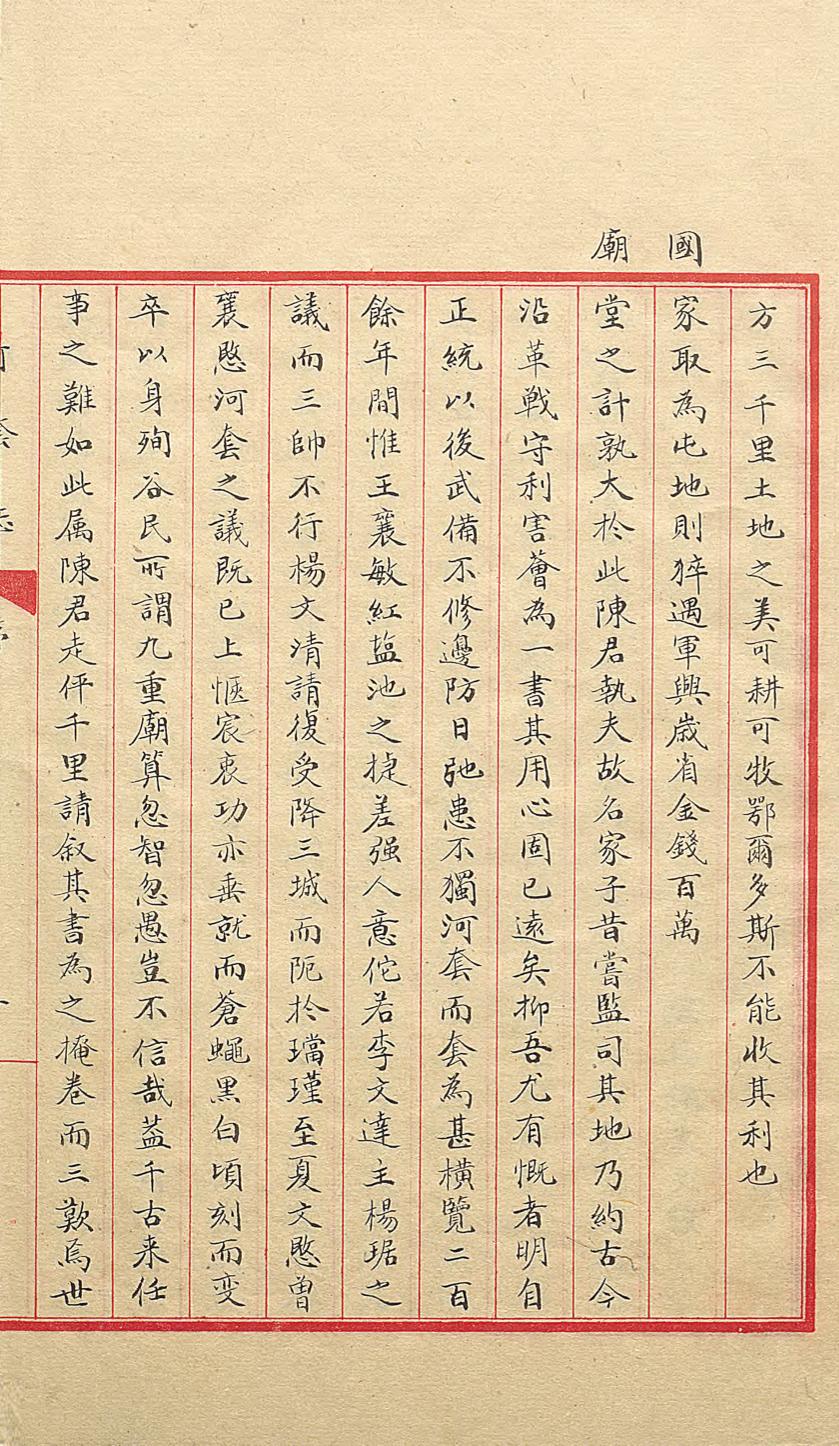 方三千里土地之美可耕可牧鄂爾多斯不能收其利也
國家取為屯地則猝遇軍興歲省金錢百萬
廟堂之計孰大於此陳君執夫故名家子昔嘗監司其地乃約古今
沿革戰守利害薈為一書其用心固已遠矣抑吾尤有慨者明自
正統以後武備不修邊防日弛患不獨河套而套為甚橫覽二百
餘年間惟王襄敏紅塩池之捷差强人意佗若李文達主楊琚之
議而三帥不行楊文清請復受降三城而阨於璫瑾至夏文愍曾
襄愍河套之議既已上愜宸衷功亦垂就而蒼蠅黑白頃刻而变
卒以身殉谷民所謂九重廟算忽智忽愚豈不信哉葢千古来任
事之難如此属陳君走伻千里請叙其書為之掩卷而三歎焉世